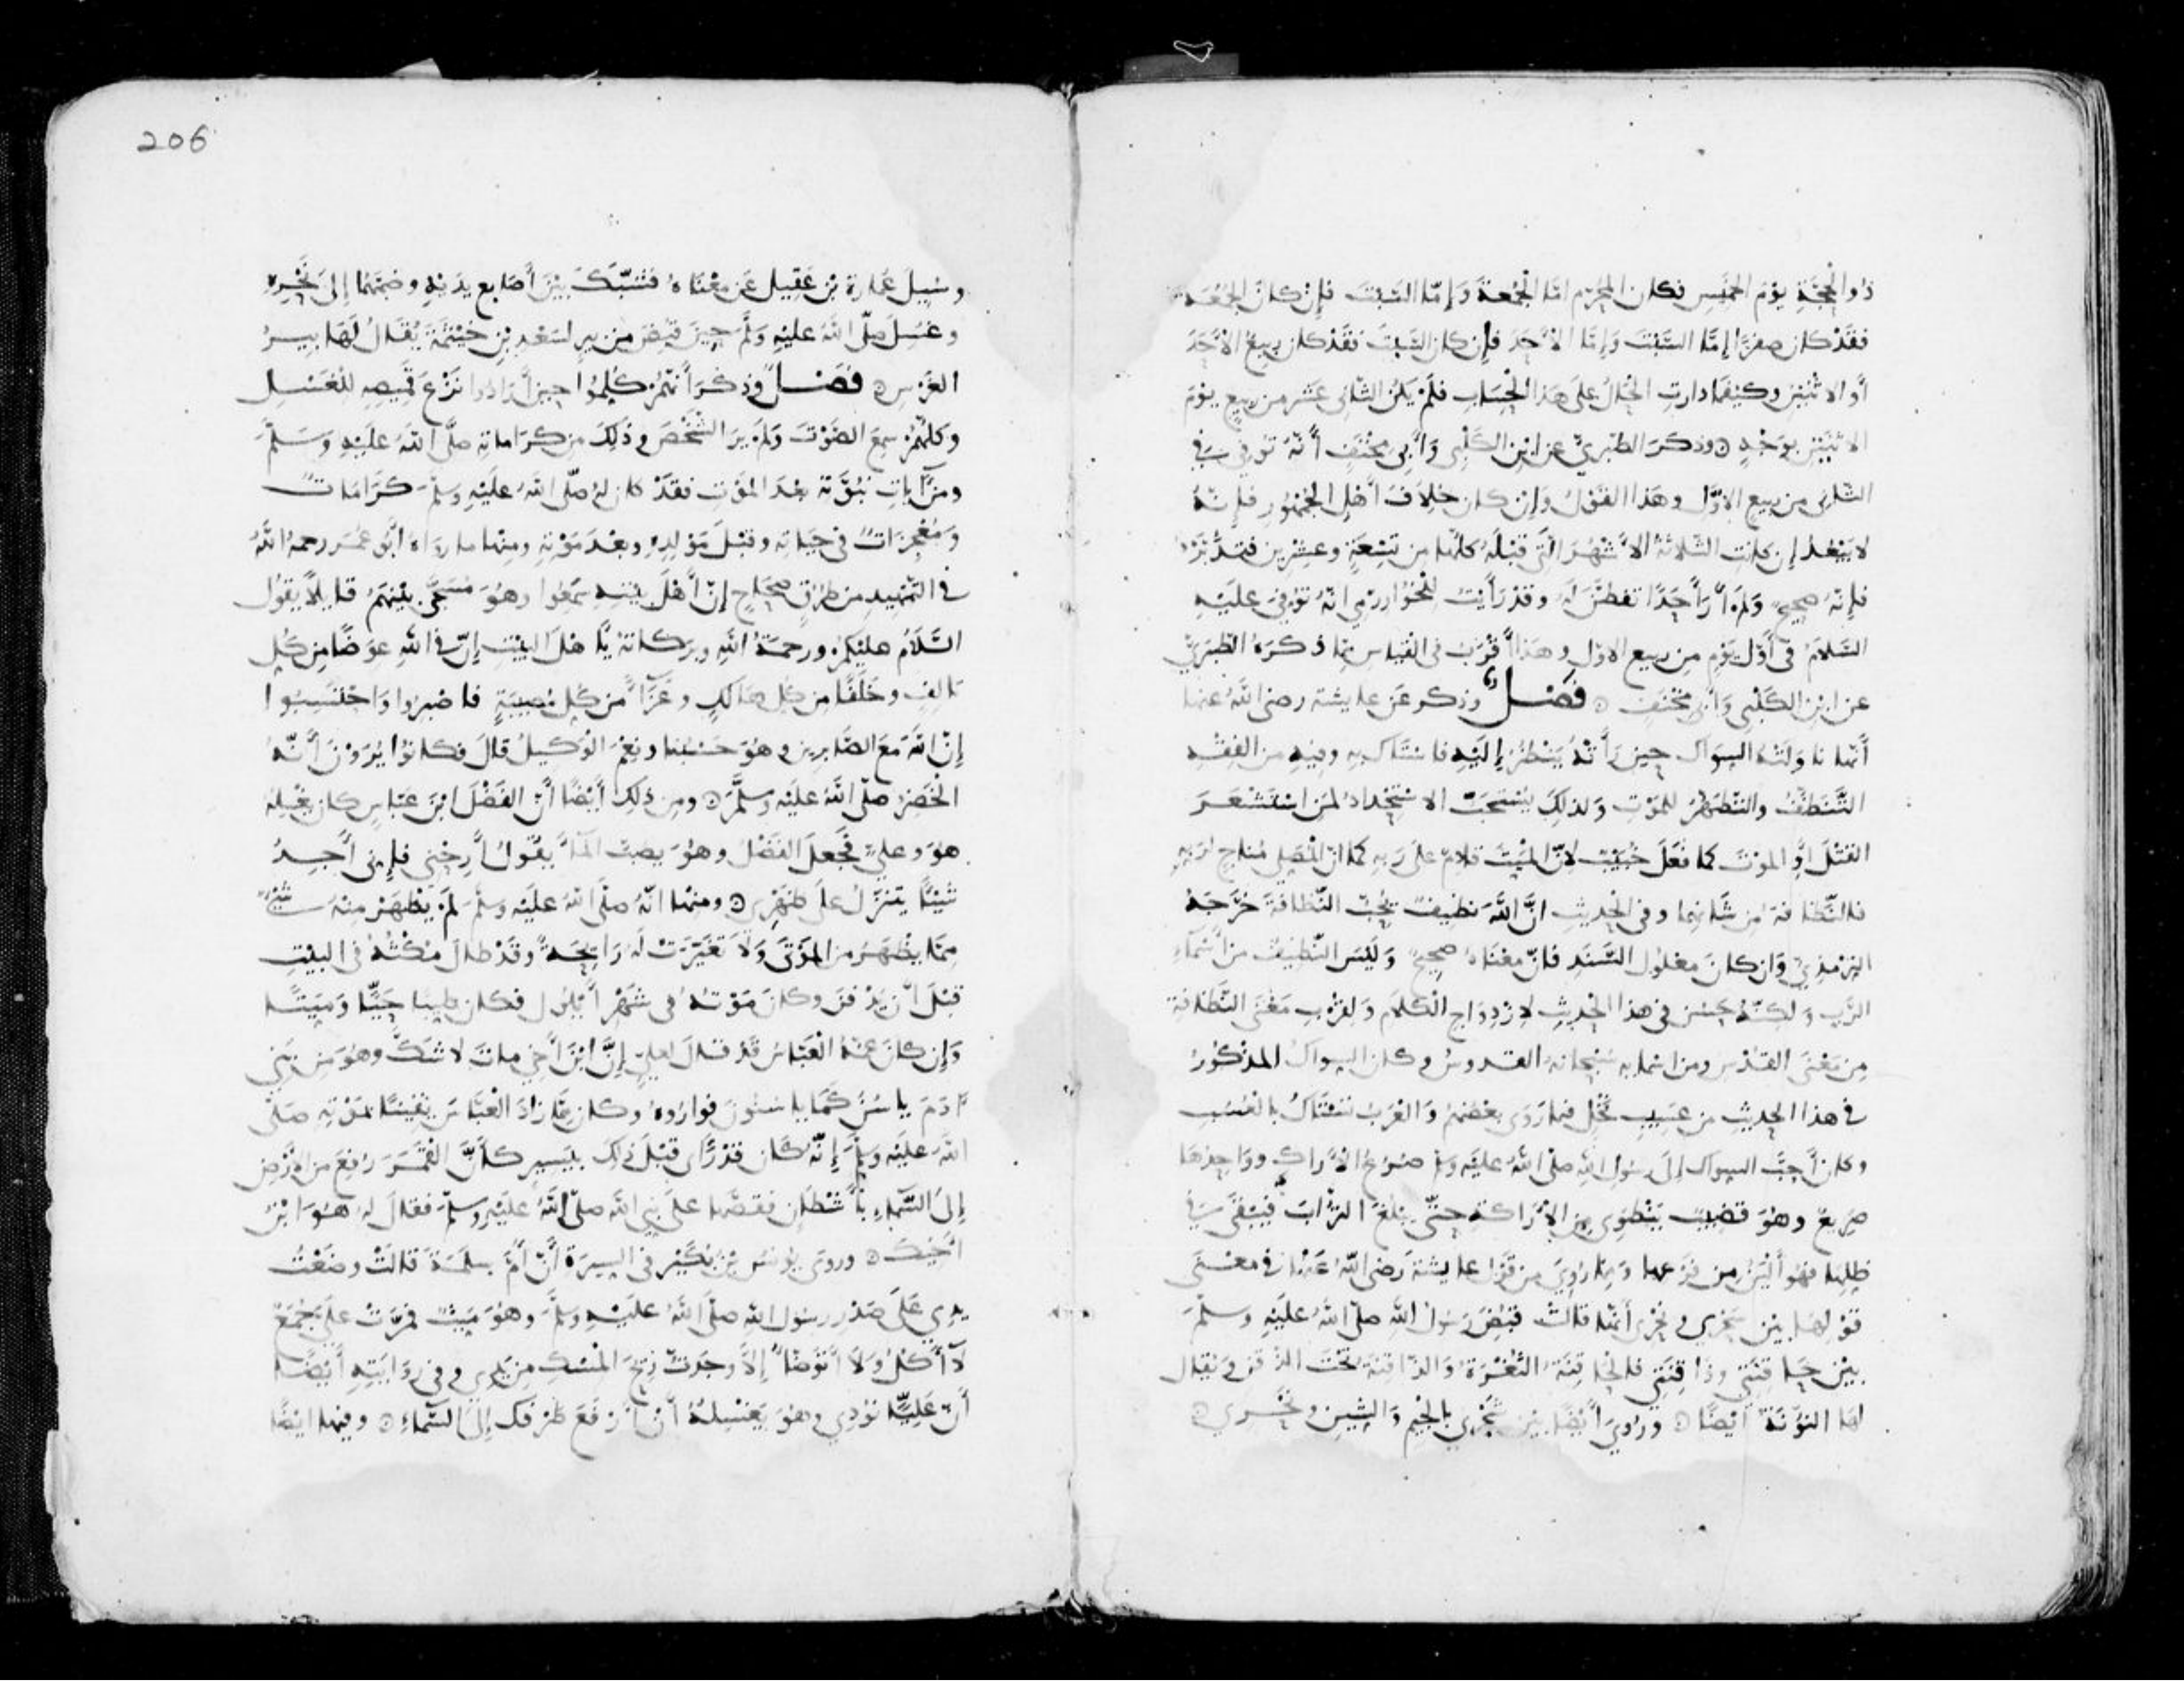 ذُو الحِجَّةِ يَوْمَ الخَمِيسِ فكان المحرّم امّا الجُمعةَ وَإمّا السّبتَ فإنْ كانَ الجُمُعَةَ
فقَدْ كان صفرٌ إمّا السَّبْتَ وَإمّا الأَحَدَ فإن كان السَّبتَ فقَدْ كان ربيعٌ الأَحَدَ
أَو الاثْنَيْنِ وكيْفَما دارتِ الحَالُ عَلَى هَذا الحِسَابِ فلَمْ يَكُنِ الثّانى عَشَر من ربيعٍ يوْمَ
الاثنَيْنِ بوَجْهٍ ۞ وذكرَ الطّبَرِيُّ عن ابنِ الكَلْبِى وَأَبِى مِخْنَفٍ أَنّهُ تُوُفِّىَ فِى
الثّانِى من ربيعِ الأوّلِ وهَذا القَوْلُ وَإن كان خِلاَفَ أَهْلِ الجُمْهُورِ فإنّهُ
لا يَبْعُدُ إن كانت الثّلاثةُ الأَشْهُرُ الَّتى قبْلَهُ كلُّها من تِسْعَةٍ وعشْرين فتدَبَّرْهُ
فإنّهُ صحيحٌ وَلَمْ أَرَ أَحَدًا تفطّنَ لَهُ وقدْ رَأَيتُ للخُوَارزْمِي انّهُ تُوُفِّىَ عليْهِ
السّلامُ فى أَوّلِ يَوْمٍ من ربيع الاوّل وهَذَا أَقْرَبُ فى القياس ممّا ذكرَهُ الطّبَرِىُّ
عن ابنِ الكَلْبِى وَأَبِى مِخْنَفٍ ۞ فَصْلٌ وذكر عَن عايشة رضى اللَّهُ عنها
أَنّها نَاوَلَتْهُ السِّوَاكَ حِينَ رَأَتْهُ يَنْظُرُ إلَيْهِ فاسْتَاكَ بِهِ وفِيهِ من الفِقْهِ
التَّنَظُّفُ والتّطَهُّرُ للمَوْتِ وَلذلِكَ يُسْتَحَبُّ الاسْتِحْدادُ لمَن استَشْعَرَ
القَتْلَ أَوِ الموْتَ كما فعَلَ خُبَيْبٌ لأنّ الميّتَ قادِمٌ عَلَى رَبِه كما انّ المُصَلِى مُناجٍ لربّهِ
فالنّظافةُ مِن شَأنِهِما وفى الحديثِ انَّ اللَّهَ نظيفٌ يُحِبُّ النّظافَةَ خَرَّجَهُ
التِرْمذِيُّ وَان كانَ معْلُولَ السَّنَدِ فانّ معْنَاهُ صحِيحٌ وَلَيْسَ النّظِيفُ من أَسْمآءِ
الرَّبِ وَلكِنّهُ حَسُنَ فى هذا الحديثِ لازْدِوَاجِ الكلامِ وَلقُرْبِ مَعْنَى النَّظَافةِ
مِن مَعْنَى القدْسِ ومن اسْمآيِهِ سُبْحانه القدوسُ وكان السِواكُ المذْكُورُ
فى هذا الحديثِ من عَسِيبِ نَخْلٍ فيما رَوَى بَعْضُهُمْ وَالعَرَبُ تَسْتَاكُ بالعُسُبِ
وكان أَحَبَّ السِواك إلَى رَسُولِ اللّهِ صلّى اللَّهُ عليْهِ وسلّم صُرُعُ الأَرَاكِ ووَاحِدُها
صَرِيعٌ وهُوَ قضِيبٌ يَنْطَوِى من الأَرَاكةِ حتّى يَبْلُغَ التُّرَابَ فَيَبْقَى فِى
ظِلِّها فهُو أَلْيَنُ من فَرْعِها وَمِمّا رُوِىَ من قَوْل عايشةَ رَضى اللَّهُ عَنْها فى معْنَى
قوْلِهَا بيْن سَحْرِى ونَحْرِى أَنّها قالتْ قُبِضَ رَسُولُ اللَّهِ صلّى اللَّهُ عليْهِ وسلّمَ
بيْنَ حَاقِنَتِى وذَاقِنَتِى فالحَاقِنَةُ الثُغْرَةُ وَالذّاقِنةُ تَحْتَ الذقنِ وَيُقالُ
لها النُّونَةُ أيْضًا ۞ ورُوِىَ أَيْضًا بيْنَ شَجْرِى بالجِيم وَالشِين ونَحْرِي ۞
206
وسُيِلَ عُمَارةُ بْن عَقِيل عَن معْنَاهُ فَشبَّكَ بيْنَ أَصَابِع يَدَيْهِ وضَمَّهُما إلى نَحْرِهِ
وغُسِلَ صلّى اللَّهُ عليْهِ وَسلّم حِينَ قُبِضَ مِن بير لسَعْدِ بْنِ خَيْثَمَةَ يُقَالُ لَهَا بيرُ
الغَرْسِ ۞ فَصْلٌ وذكَرَ أَنّهُمْ كُلِّمُوا حِينَ أَرَادُوا نَزْعَ قَمِيصِهِ للغُسْلِ
وكلّهُمْ سمِعَ الصَّوْتَ وَلَمْ يَرَ الشَّخْصَ وذَلِكَ مِن كَرَاماتِه صلَّى اللَّهُ علَيْهِ وَسَلّمَ
ومن آيَاتِ نُبُوَّتِه بعْدَ الموْتِ فقَدْ كان لهُ صلّى اللَّهُ علَيْهِ وسلّمَ كَرَامَاتٌ
وَمُعْجِزَاتٌ فى حَيَاتِه وقبْلَ مَوْلِدِهِ وبعْدَ مَوْتِهِ ومِنْها ما رَوَاهُ أَبُو عُمَرَ رحمهُ اللَّهُ
فى التّمْهِيدِ من طُرُقٍ صِحَاحٍ إنّ أَهْلَ بيْتِهِ سَمِعُوا وهُوَ مُسَجًّى بيْنَهُمْ قايلاً يقُولُ
السَّلَامُ عليْكُمْ ورحمَةُ اللَّهِ وبرَكاتهُ يَا هْلَ البيْتِ إنّ فى اللَّهِ عِوَضًا مِن كُلِ
تالِفٍ وخَلَفًا مِن كُلِ هَالكٍ وعَزَاءً من كُلِ مُصِيبَةٍ فاصْبِرُوا وَاحْتَسِبُوا
إنّ اللَّهَ مَعَ الصَّابِرِين وهُوَ حَسْبُنا ونِعْمَ الوَكيلُ قالَ فكانُوا يُرَوْنَ أَنّهُ
الخَضِرُ صلّى اللَّهُ علَيْهِ وسلّمَ ۞ ومِن ذلِكَ أَيْضًا أَنّ الفَضْلَ ابنَ عَبّاسٍ كان يَغْسِلهُ
هوَ وعلِىٌّ فَجعلَ الفَضْلُ وهُوَ يصُبّ المآءَ يقُولُ أَرِحْنِى فإنى أَجِدُ
شَيْئًا يَتنَزّلُ علَى ظَهْرِى ۞ ومنْها انّهُ صلّى اللَّهُ علَيْهِ وسلّمَ لَمْ يَظْهَرْ مِنْهُ شَيْءٌ
مِمّا يظْهَرُ من المَوْتَى وَلَا تَغَيّرَتْ لَهُ رَايِحَةٌ وقَدْ طالَ مُكْثُهُ فى البيْتِ
قبْلَ أَن يُدْفَنَ وكانَ مَوْتهُ فى شَهْرِ أَيْلُولَ فكان طيبًا حَيًّا وَمَيتًا
وَإن كانَ عَمّهُ العَبّاسُ قَدْ قالَ لعلِىٍّ إنَّ ابْنَ أَخِى ماتَ لا شكَّ وهُوَ مِن بَنِى
آدَمَ ياسُنُ كَمَا ياسُنُونَ فوارُوهُ وكان مِمّا زادَ العَبَّاسَ يَقِينًا بمَوْتِهِ صَلّى
اللَّهُ علَيْه وسلّمَ إنّهُ كَان قدْ رَأَى قبْلَ ذلِكَ بيَسِيرٍ كأَنَّ القَمَرَ رُفِعَ من الأَرْضِ
إلَى السّمآءِ بأَشْطَانٍ فقصّها علَى نبِى اللَّه صلّى اللَّهُ عليْهِ وسلّم فقالَ لهُ هُوَ ابْنُ
أَخِيكَ ۞ وروى يُونُسُ بْنُ بُكَيْرٍ فى السِيرَةِ أَنّ أُمَّ سلَمَةَ قالَتْ وضَعْتُ
يدِى عَلَى صَدْرِ رسُولِ اللّه صلّى اللَّهُ علَيْهِ وسلّمَ وهُوَ مَيّتٌ فمرّتْ علَىَّ جُمَعٌ
لا آكُلُ ولاَ أَتوَضّأُ إلاّ وجَدتُ رِيحَ المِسْكِ مِن يَدِى وفى رِوَايَتِهِ أَيْضًا
أَنّ عَلِيًّا نُودِىَ وهُوَ يَغْسِلُهُ أَنْ ارْفَعْ طَرْفَكَ إلَى السّمآءِ ۞ وفيها ايْضًا